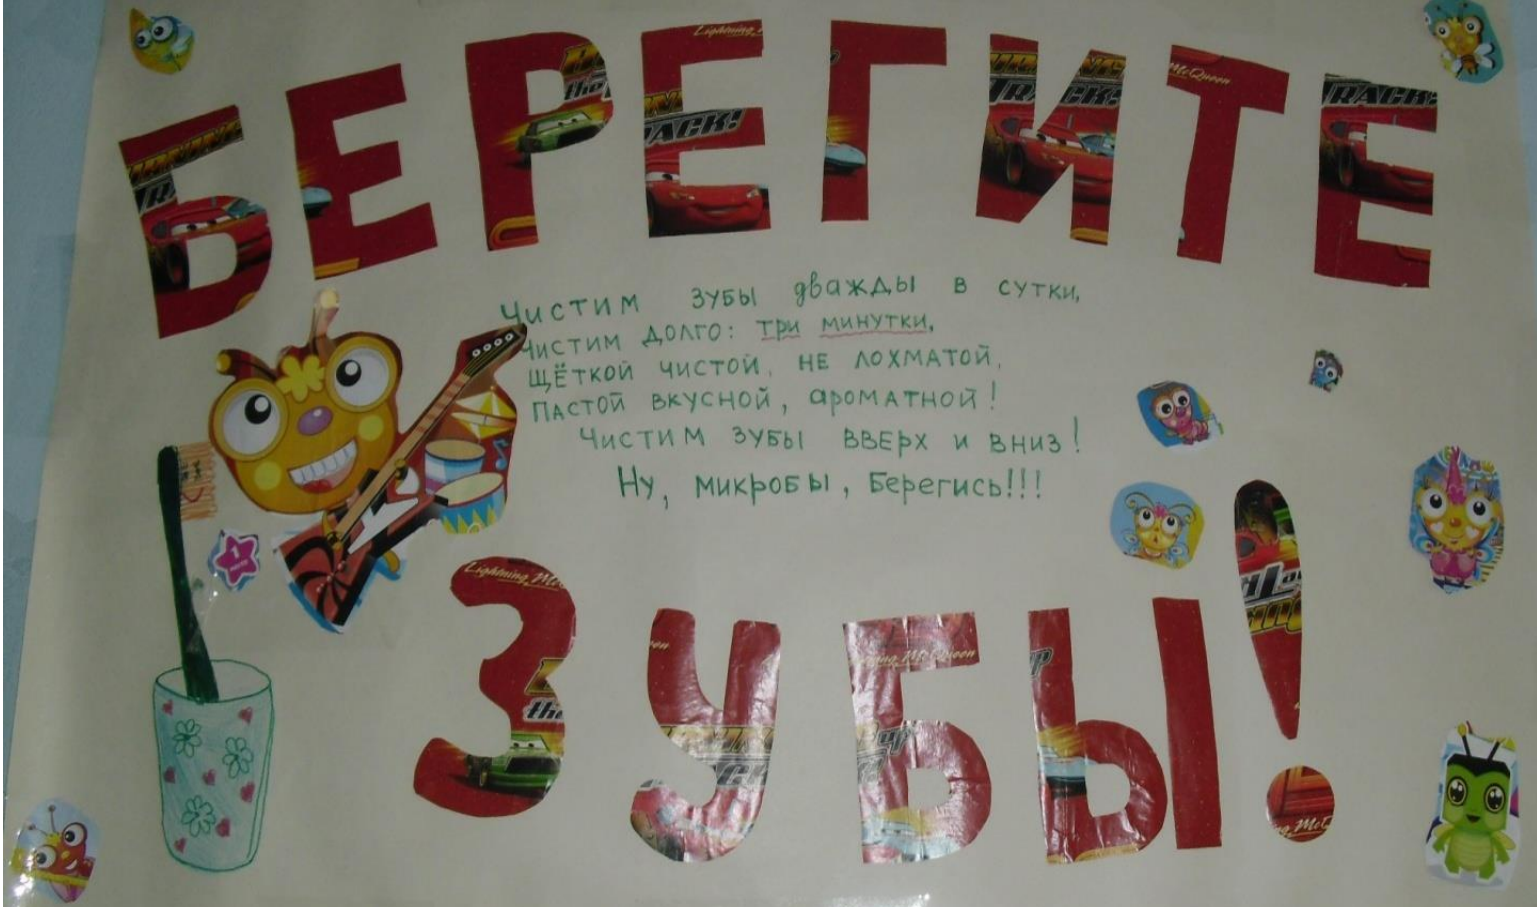 БЕРЕГИТЕ
Чистим зубы дважды в сутки,
Чистим долго: три минутки,
Щёткой чистой, не лохматой,
Пастой вкусной, ароматной!
Чистим зубы вверх и вниз!
Ну, микробы, берегись!!!
ЗУБЫ!